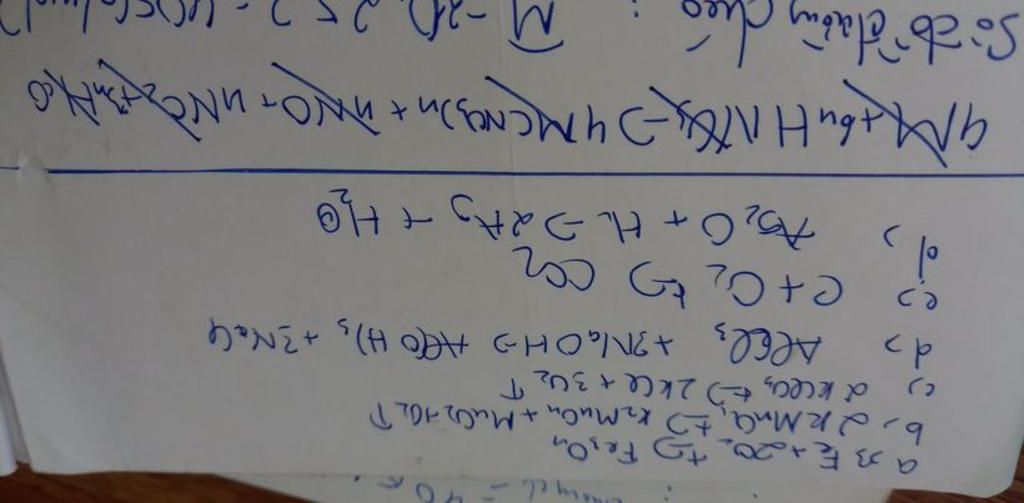 a) 3Fe + 2O2 t°→ Fe3O4
b, 2KMnO4 t°→ K2MnO4 + MnO2 + O2↑
c) 2KClO3 t°→ 2KCl + 3O2↑
d) AlCl3 + 3NaOH → Al(OH)3 + 3NaCl
e) C + O2 t°→ CO2
f) Ag2O + H2 → 2Ag + H2O
4M + 6nHNO3 → 4M(NO3)n + nNO + nNO2 + 3nH2O
Sơ đồ đường chéo :